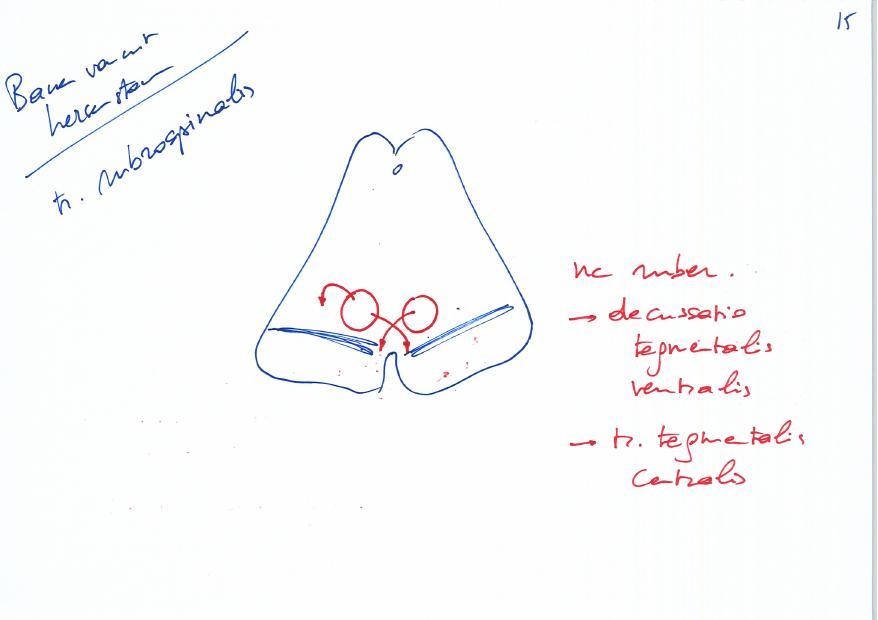 15
Banen vanuit
hersenstam
tr. rubrospinalis
nc ruber.
→ decussatio
tegmentalis
ventralis
→ tr. tegmentalis
centralis